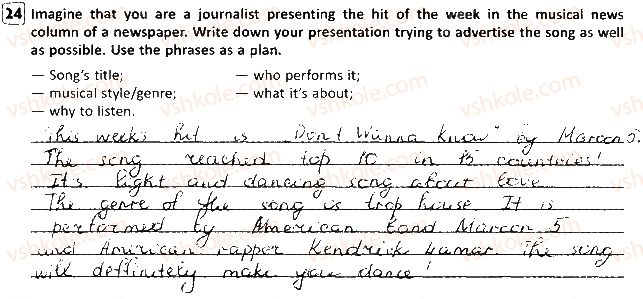 24 Imagine that you are a journalist presenting the hit of the week in the musical news
column of a newspaper. Write down your presentation trying to advertise the song as well
as possible. Use the phrases as a plan.
— Song's title; — who performs it;
— musical style/genre; — what it's about;
— why to listen.
This week's hit is „Don't Wanna Know" by Maroon 5.
The song reached top 10 in 15 countries!
It's light and dancing song about love
The genre of the song is trop house It is
performed by American band Maroon 5
and American rapper Kendrick Lamar. The song
will deffinitely make you dance!
vshkole.com